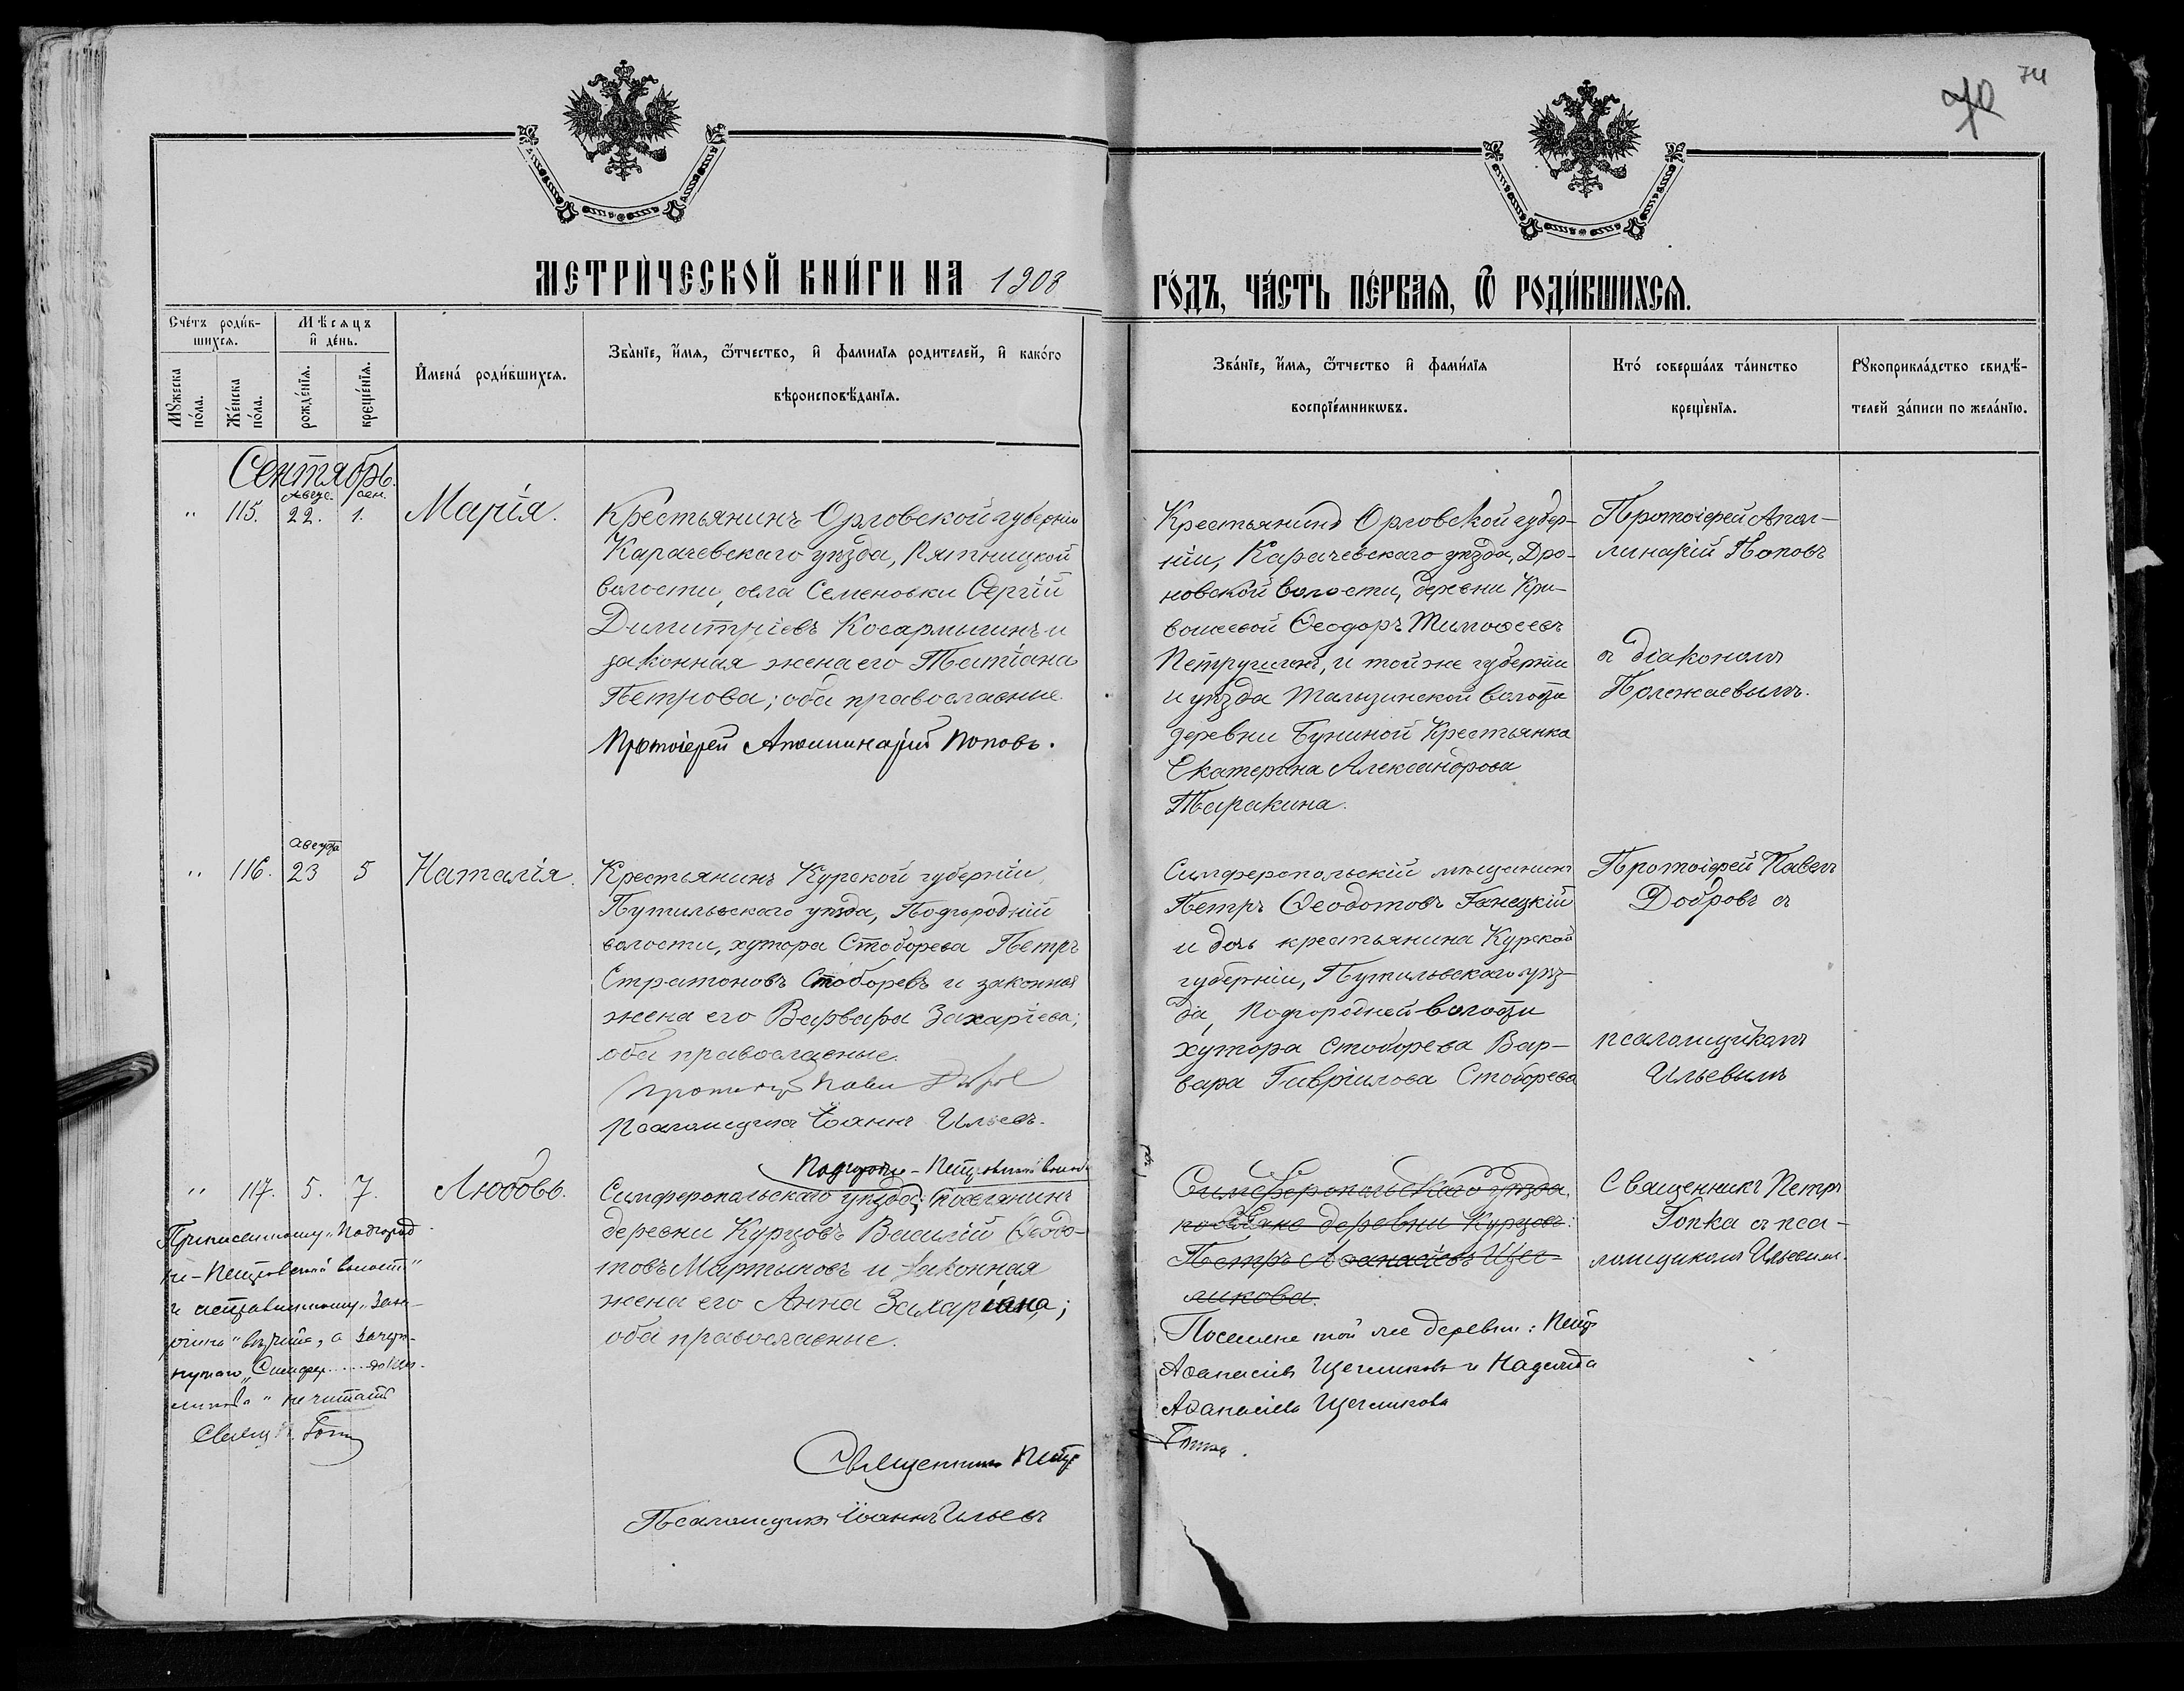 74
70
МЕТРИ́ЧЕСКОЙ КНИ́ГИ НА 1908
ГО́ДЪ, ЧА́СТЬ ПЕ́РВАЯ, Ѿ РОДИ́ВШИХСЯ.
Сче́тъ роди́в-
шихся.
Мꙋжеска
по́ла.
Же́нска
по́ла.
Мѣсяцъ
и де́нь.
рожде́нїя.
креще́нїя.
Имена́ роди́вшихся.
Зва́нїе, и́мя, ѻ҆́тчество, и фамилїя родителей, и како́го
вѣроисповѣ́данїя.
Зва́нїе, и́мя, ѻ҆́тчество и фами́лїя
воспрїе́мникωвъ.
Кто́ соверша́лъ та́инство
креще́нїя.
Рꙋкоприкла́дство свидѣ́-
телей за́писи по жела́нїю.
Сентябрь.
" 115. Авгус. 22. сен. 1. Марія.
Крестьянинъ Орловской губерніи
Карачевскаго уѣзда, Пятницкой
волости, села Семеновки Сергій
Димитріевъ Косармыгинъ и
законная жена его Татіана
Петрова; оба православные.
Протоіерей Аполлинарій Поповъ.
Крестьянинъ Орловской губер-
ніи, Карачевскаго уѣзда, Дро-
новской волости, деревни Кри-
вошеевой Ѳеодоръ Тимоѳеевъ
Петрушинъ, и той же губерніи
и уѣзда Тальзинской волости
деревни Буниной Крестьянка
Екатерина Александрова
Таракина.
Протоіерей Апол-
линарій Поповъ
съ діакономъ
Полежаевымъ.
" 116. августа 23 5 Наталія.
Крестьянинъ Курской губерніи,
Путивльскаго уѣзда, Подгородній
волости, хутора Стоборева Петръ
Стратоновъ Стоборевъ и законная
жена его Варвара Захаріева;
оба православные.
Протоіерей Павелъ Добровъ
Псаломщикъ Іоаннъ Ильевъ.
Симферопольскій мѣщанинъ
Петръ Ѳеодотовъ Ганецкій
и дочь крестьянина Курской
губерніи, Путивльскаго уѣз-
да, Подгородней волости
хутора Стоборева Вар-
вара Гавріилова Стоборева
Протоіерей Павелъ
Добровъ съ
псаломщикомъ
Ильевымъ
" 117. 5. 7. Любовь.
Подгородне-Петровской волости
Симферопольскаго уѣзда, поселянинъ
деревни Курцовъ Василій Ѳеодо-
товъ Мартыновъ и законная
жена его Анна Захаріина;
оба православные.
Священникъ Петръ
Гопка.
Псаломщикъ Іоаннъ Ильевъ
Приписанному "Подгород-
не-Петровской волости"
и исправленному "Заха-
ріина" вѣрить, а зачерк-
нутаго "Симфер.....
ликова" не читать
Свящ. П. Гопка
Симферопольскаго уѣзда,
поселяне деревни Курцовъ:
Петръ Аѳанасіевъ Щег-
ликова.
Поселяне той же деревни: Петръ
Аѳанасіевъ Щегликовъ и Надежда
Аѳанасіева Щегликова
Священникъ Петръ
Гопка съ пса-
ломщикомъ Ильевымъ.